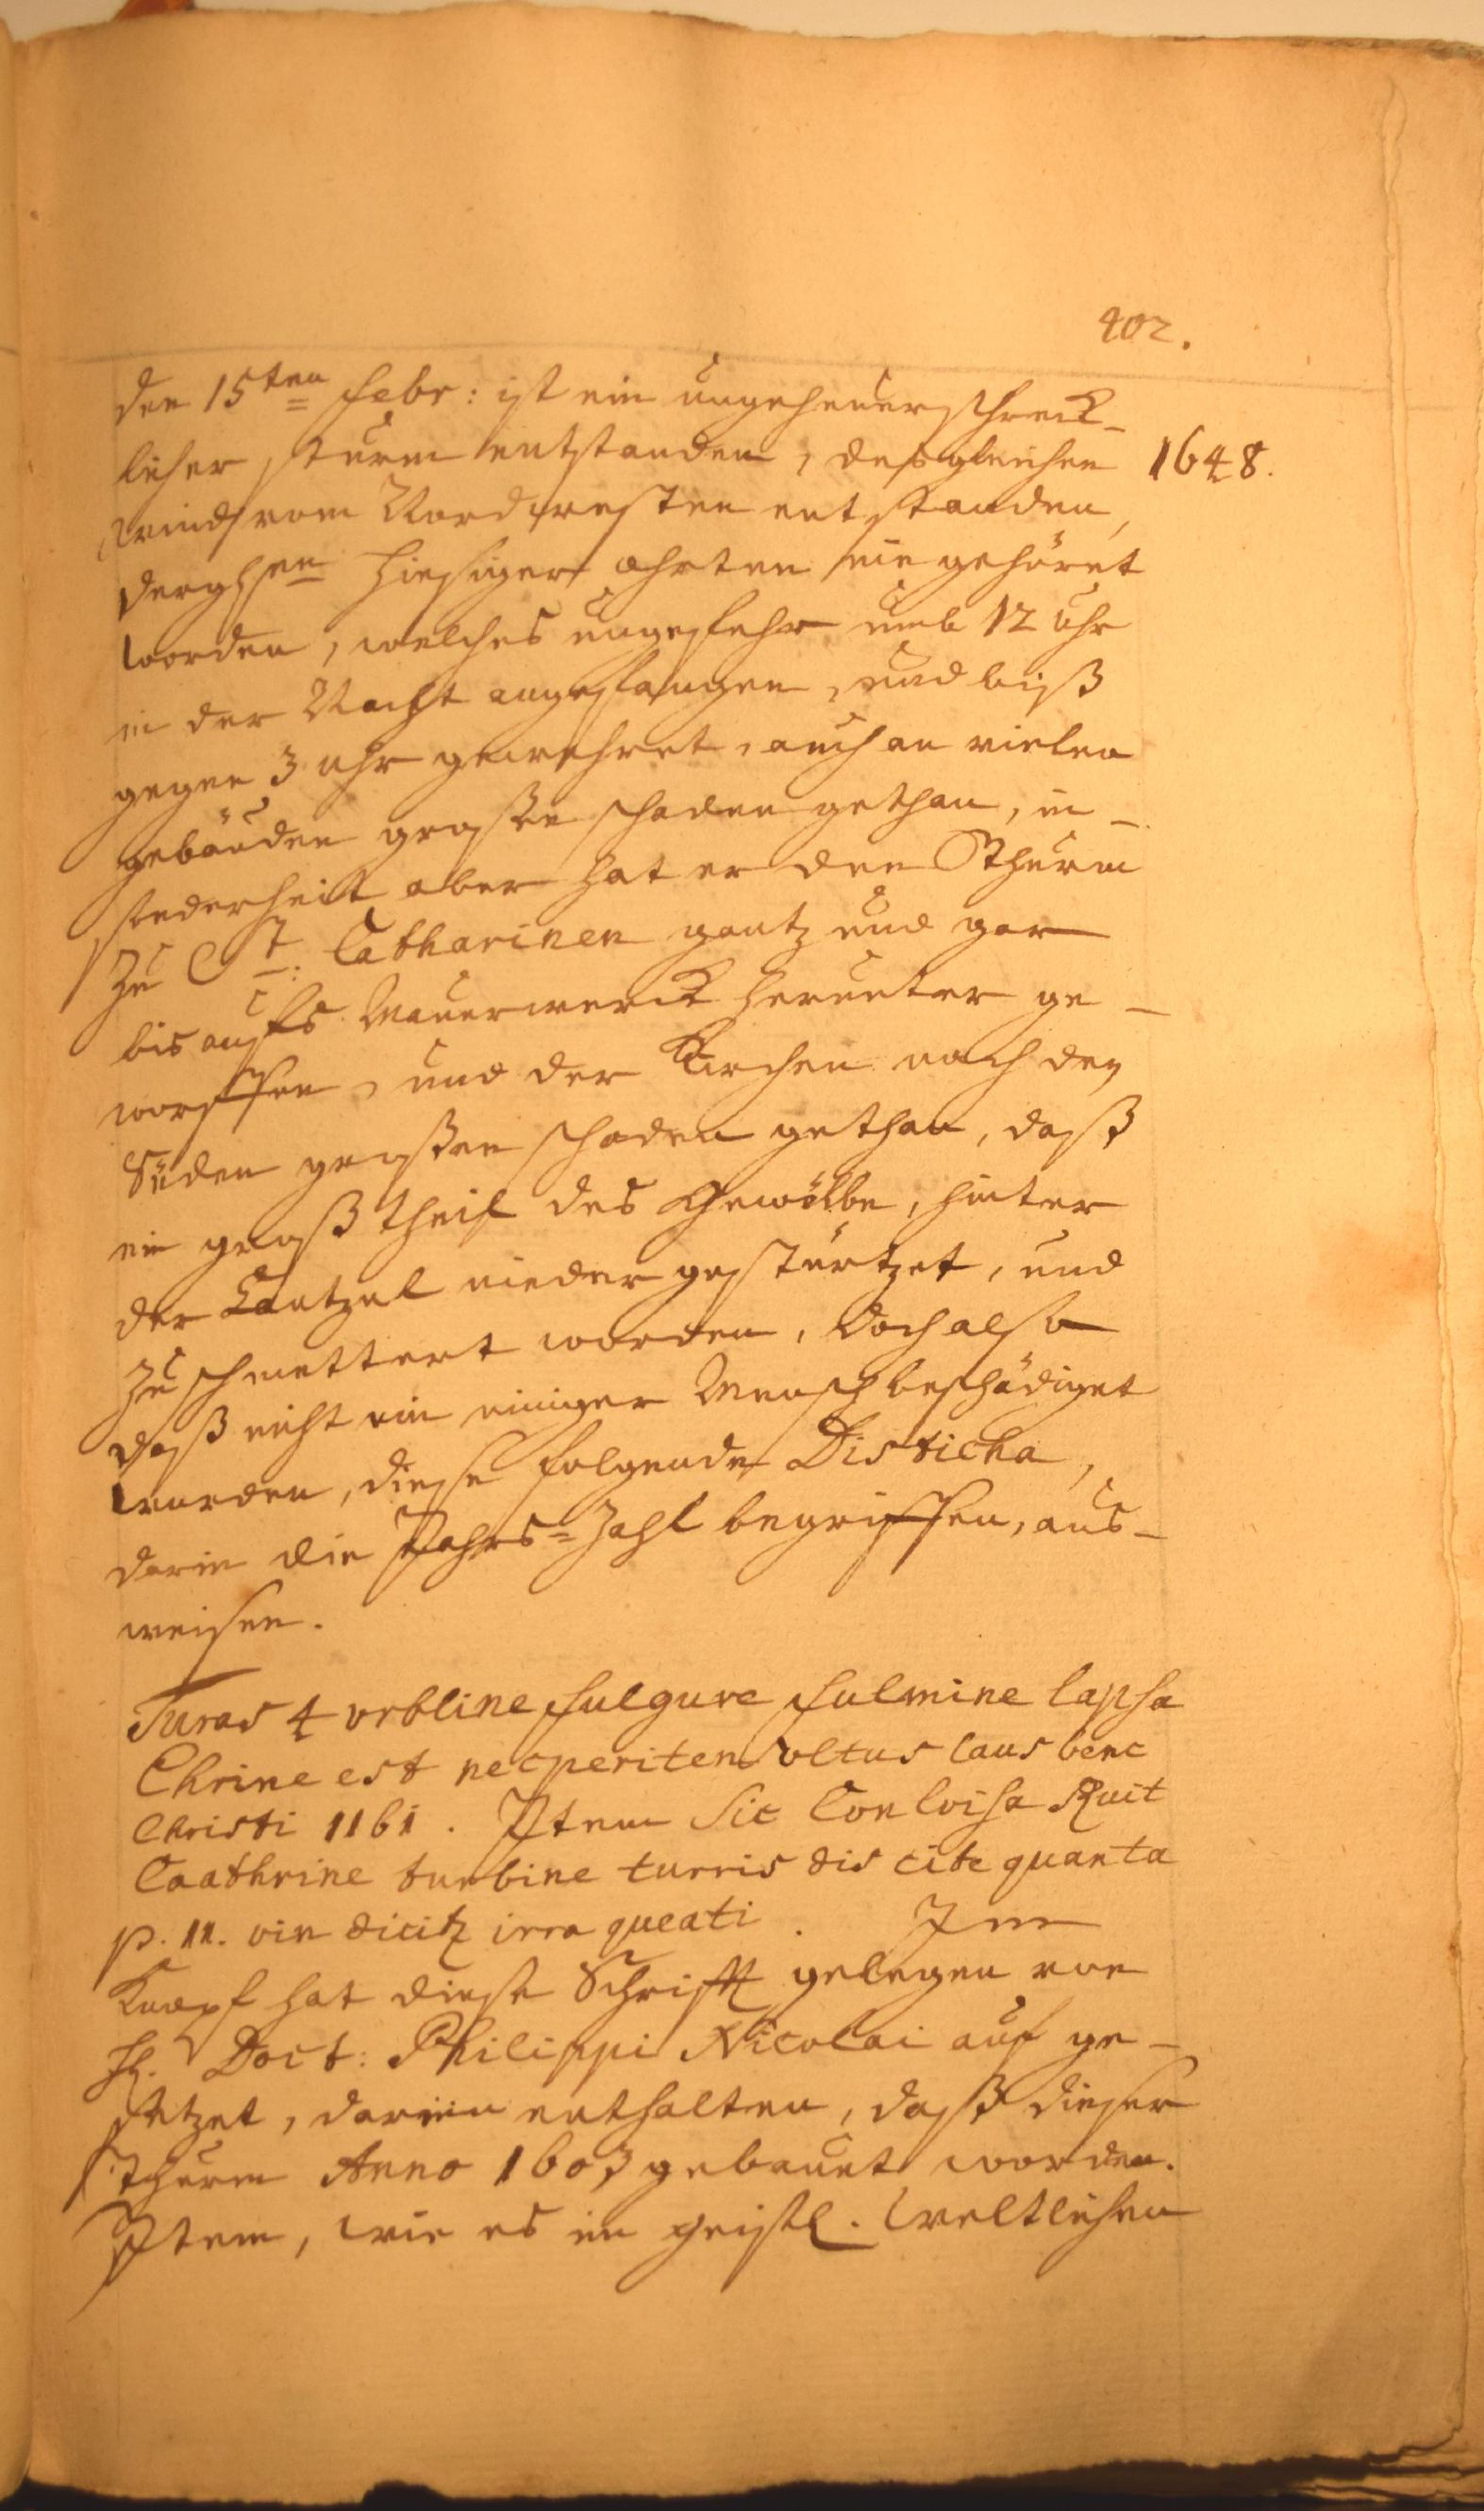 402.
den 15ten Febr: ist ein ungeheuer schreck-
licher sturm entstanden, desgleichen
1648.
winds vom Nordwesten entstanden,
derghen hiesiger ohrten nie gehöret
worden, welches ungefehr umb 12 Uhr
in der Nacht angefangen, und biß
gegen 3 Uhr gewehret, auch an vielen
gebäuden großen schaden gethan, in-
sonderheit aber hat er den Thurm
zu St: Catharinen gantz und gar
bis aufs Mauerwerck herunter ge-
worffen, und der Kirchen nach dem
Süden großen schaden gethan, daß
ein groß theil des Gewölbe, hinter
der Cantzel nieder gestürtzet, und
zuschmettert worden, doch also
daß nicht ein einiger Mensch beschädiget
wurden, diese folgende Disticha,
darin die Jahrs-Zahl begriffen, aus-
weisen.
Turas 4 urbline fulgure fulmine lapsa
Chrine est nec periten voltus laus benc
Christi 1161. Item Sic Conloisa Ruit
Caathrine turbine turris dis cite quanta
p. 11. vin dicitz irra queati. Im
Knopf hat diese Schrifft gelegen von
H. Doct: Philippi Nicolai auf ge-
setzet, darinn enthalten, daß dieser
Thurm Anno 1603 gebauet worden.
Item, wie es im geistl. Weltlichen